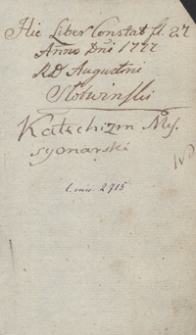 Hic Liber Constat fl. 2.
Anno Dni 1777
RD Augustini
Slotwinski
Katechizm Mis
syonarski
l. inw. 2715